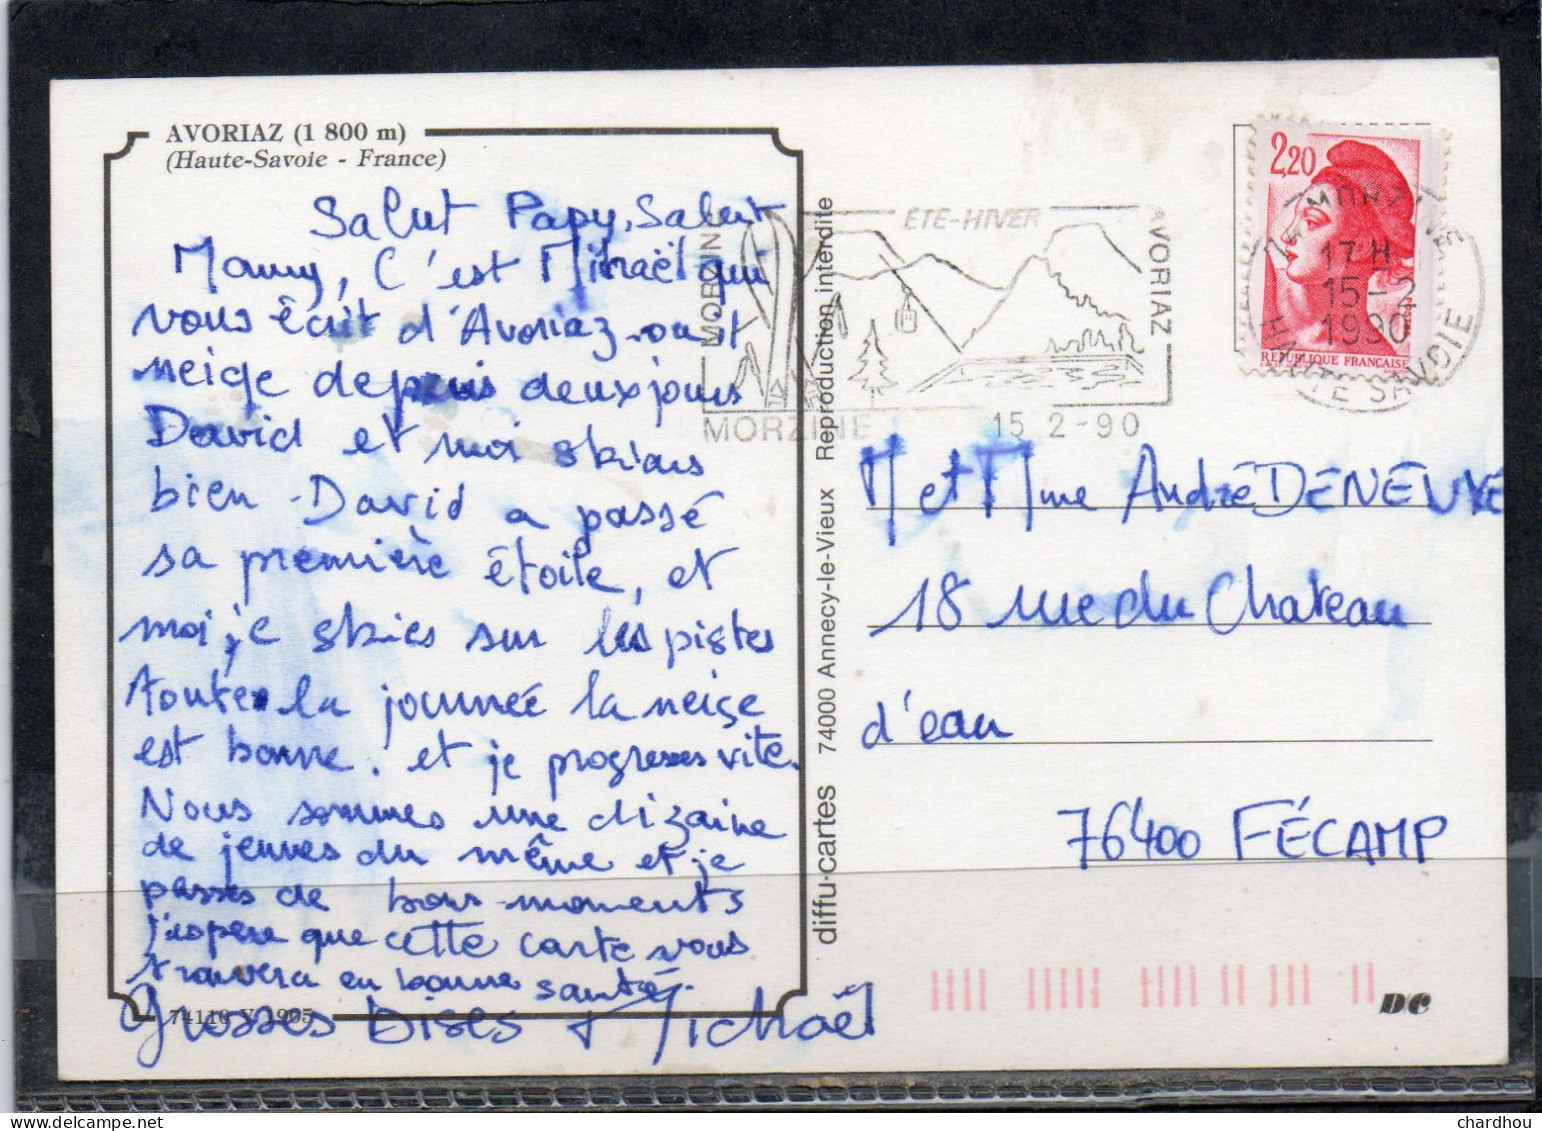 AVORIAZ (1 800 m)
(Haute-Savoie - France)
Salut Papy, Salut
Mamy, C'est Mikaël qui
vous écrit d'Avoriaz. ou il
neige depuis deux jours
David et moi skions
bien. David a passé
sa première étoile, et
moi, je skies sur les pistes
toute la journée la neige
est bonne. et je progresses vite.
Nous sommes une dizaine
de jeunes du même et je
passes de bons moments
j'espère que cette carte vous
trouvera en bonne santé.
Grosses bises Michaël
74110 Y 1905
diffu-cartes 74000 Annecy-le-Vieux Reproduction interdite
MORZINE
ÉTÉ-HIVER
AVORIAZ
MORZINE 15 2-90
2,20
RÉPUBLIQUE FRANÇAISE
74 MORZINE
17 H
15-2
1990
HAUTE SAVOIE
M et Mme André DENEUVE
18 rue du Chateau
d'eau
76400 FÉCAMP
DC
chardhou